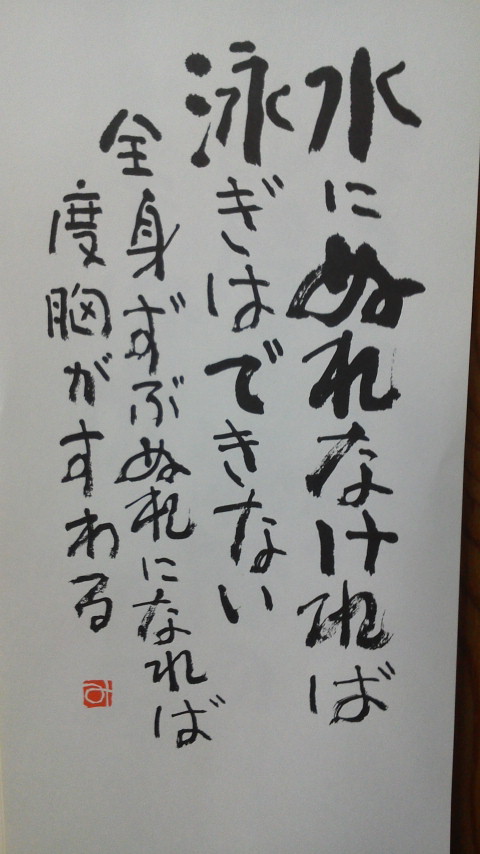 水にぬれなければ
泳ぎはできない
全身ずぶぬれになれば
度胸がすわる
み